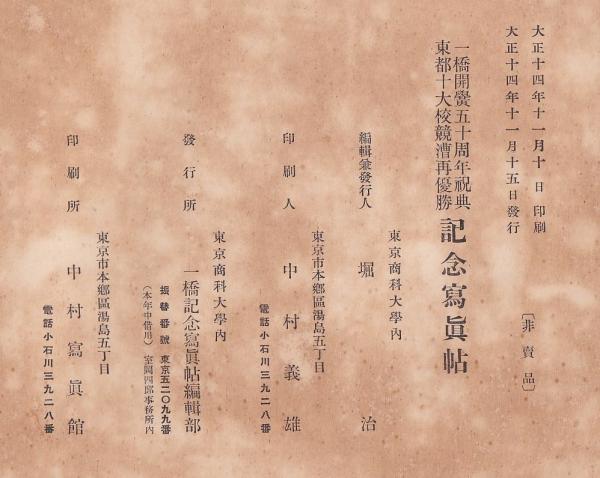 大正十四年十一月十日印刷
大正十四年十一月十五日發行
〔非賣品〕
一橋開黌五十周年祝典
東都十大校競漕再優勝
記念寫眞帖
東京商科大學內
編輯兼發行人 堀治
東京市本鄕區湯島五丁目
印刷人 中村義雄
電話小石川三九二八番
東京商科大學內
發行所 一橋記念寫眞帖編輯部
振替番號 東京五二〇九九番
(本年中借用) 室閥四郞事務所內
東京市本鄕區湯島五丁目
印刷所 中村寫眞館
電話小石川三九二八番